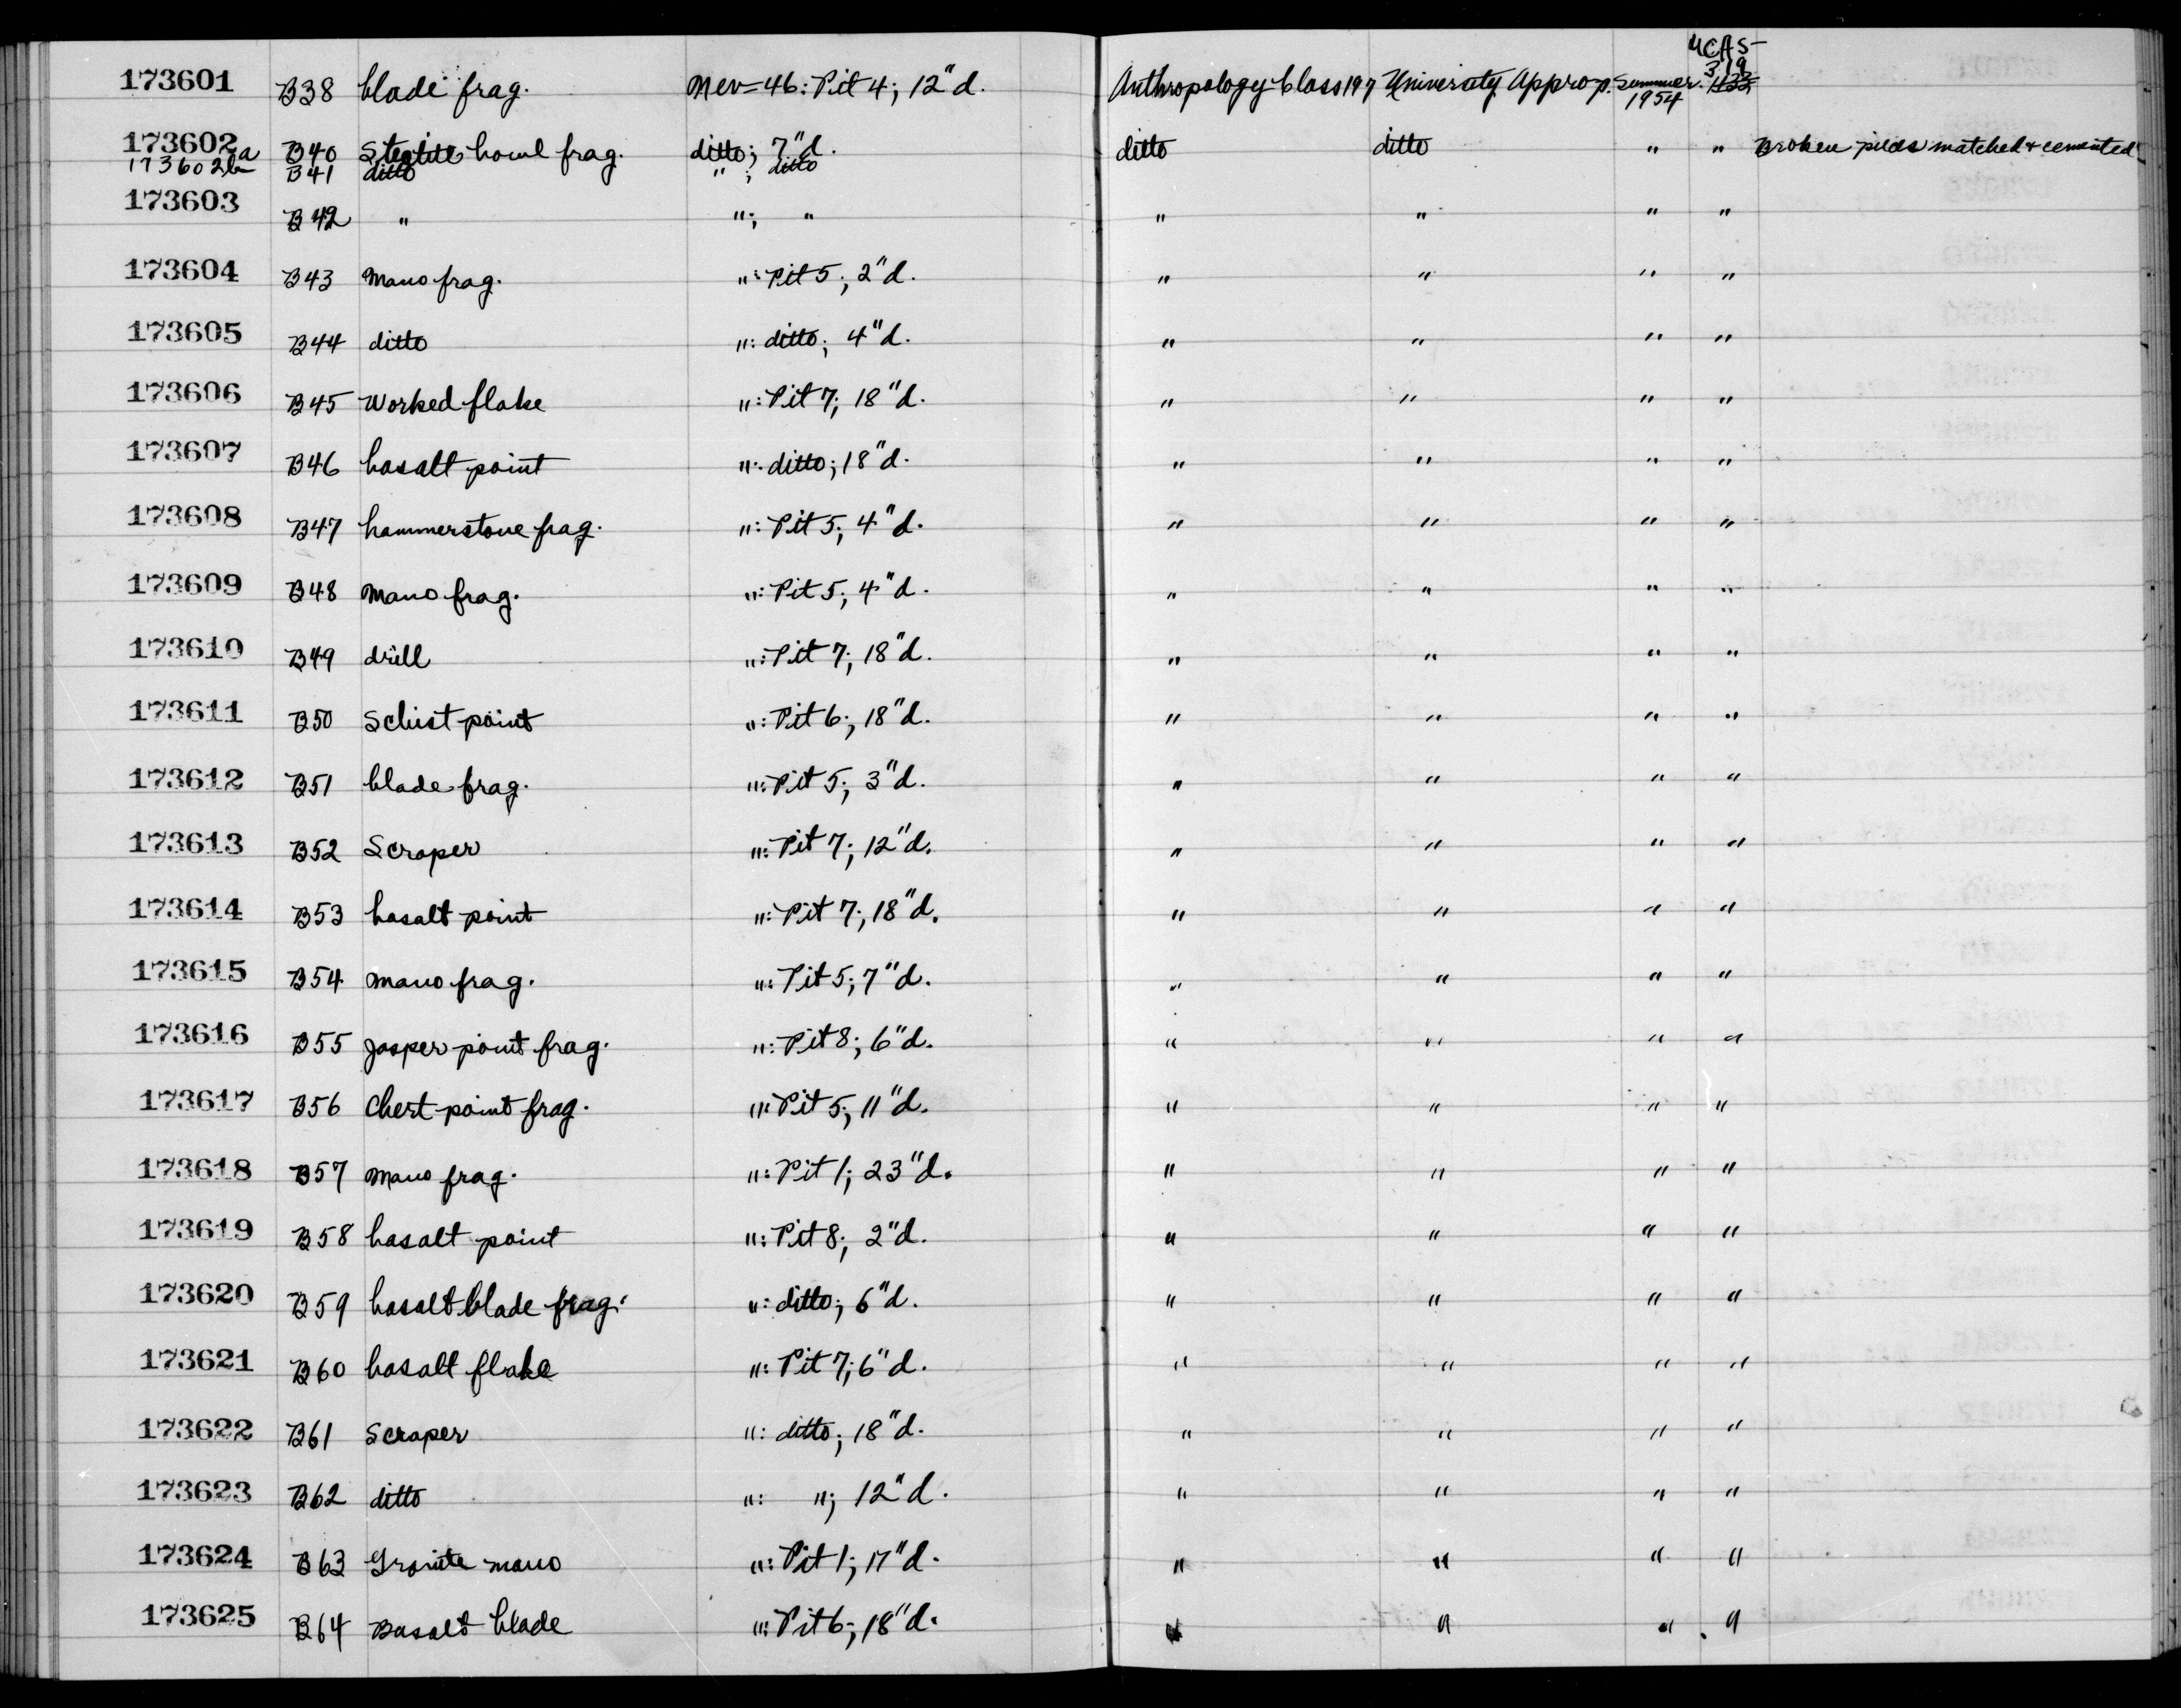 UCAS-
319
173601 B38 blade frag. Mer-46: Pit 4; 12"d. Anthropology Class 197 University Approp. Summer 1954 133
173602a B40 Steatite bowl frag. ditto; 7"d. ditto ditto " " Broken pieces matched & cemented
173602b B41 ditto "; ditto
173603 B42 " "; " " " " "
173604 B43 Mano frag. ": Pit 5; 2"d. " " " "
173605 B44 ditto ": ditto; 4"d. " " " "
173606 B45 Worked flake ": Pit 7; 18"d. " " " "
173607 B46 basalt point ": ditto; 18"d. " " " "
173608 B47 hammerstone frag. ": Pit 5; 4"d. " " " "
173609 B48 Mano frag. ": Pit 5; 4"d. " " " "
173610 B49 drill ": Pit 7; 18"d. " " " "
173611 B50 Schist point ": Pit 6; 18"d. " " " "
173612 B51 blade frag. ": Pit 5; 3"d. " " " "
173613 B52 Scraper ": Pit 7; 12"d. " " " "
173614 B53 basalt point ": Pit 7; 18"d. " " " "
173615 B54 mano frag. ": Pit 5; 7"d. " " " "
173616 B55 Jasper point frag. ": Pit 8; 6"d. " " " "
173617 B56 Chert point frag. ": Pit 5; 11"d. " " " "
173618 B57 Mano frag. ": Pit 1; 23"d. " " " "
173619 B58 basalt point ": Pit 8; 2"d. " " " "
173620 B59 basalt blade frag. ": ditto; 6"d. " " " "
173621 B60 basalt flake ": Pit 7; 6"d. " " " "
173622 B61 Scraper ": ditto; 18"d. " " " "
173623 B62 ditto ": "; 12"d. " " " "
173624 B63 Granite mano ": Pit 1; 17"d. " " " "
173625 B64 Basalt blade ": Pit 6; 18"d. " " " "